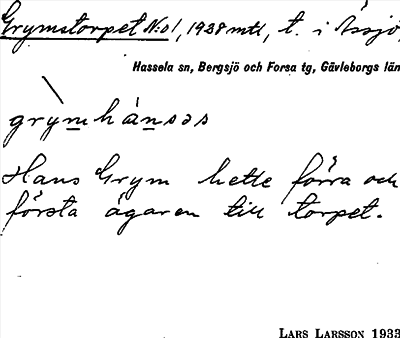 Grymstorpet No1, 1938 mtl, t. i Åssjö,
Hassela sn, Bergsjö och Forsa tg, Gävleborgs län
grymhánsəs
Hans Grym hette förra och
första ägaren till torpet.
LARS LARSSON 1933